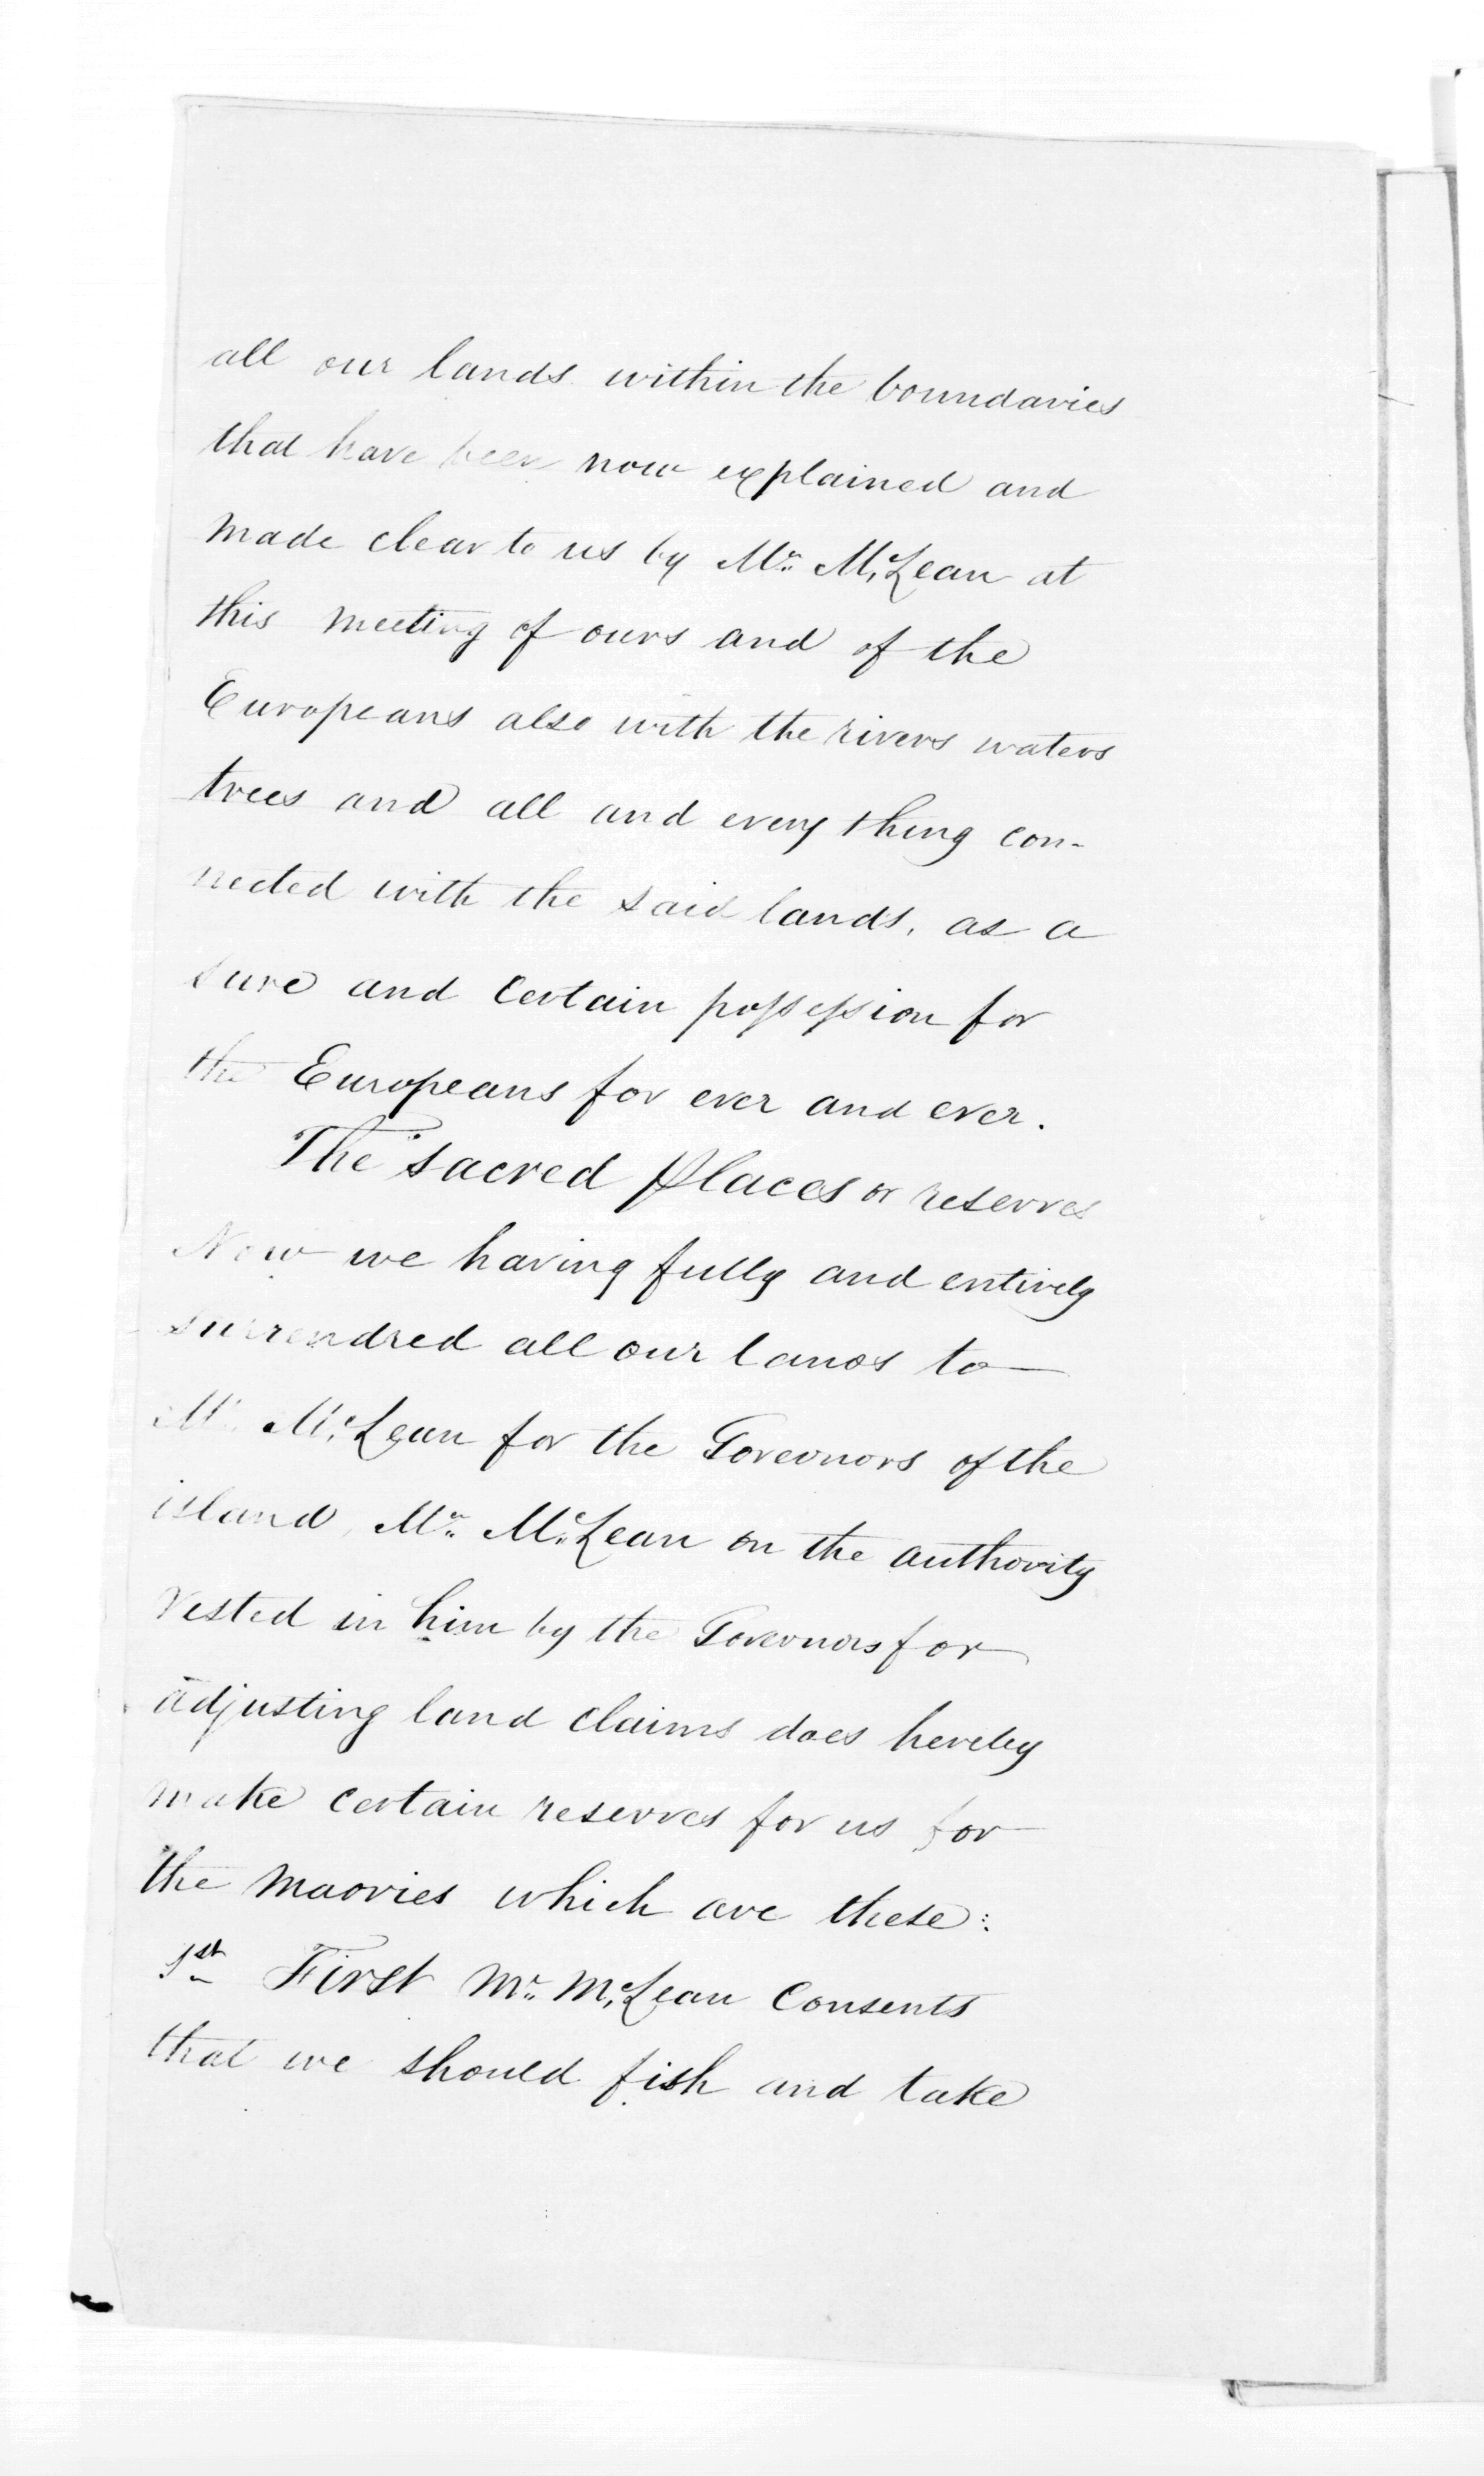 all our lands within the boundaries
that have been now explained and
made clear to us by Mr. McLean at
this meeting of ours and of the
Europeans also with the rivers waters
trees and all and every thing con-
nected with the said lands, as a
sure and certain possession for
the Europeans for ever and ever.
The sacred places or reserves
Now we having fully and entirely
surrendred all our lands to
Mr. McLean for the Goveonors of the
island, Mr. McLean on the authority
vested in him by the Goveonors for
adjusting land claims does hereby
make certain reserves for us for
the maories which are these:
1st First Mr. McLean consents
that we should fish and take